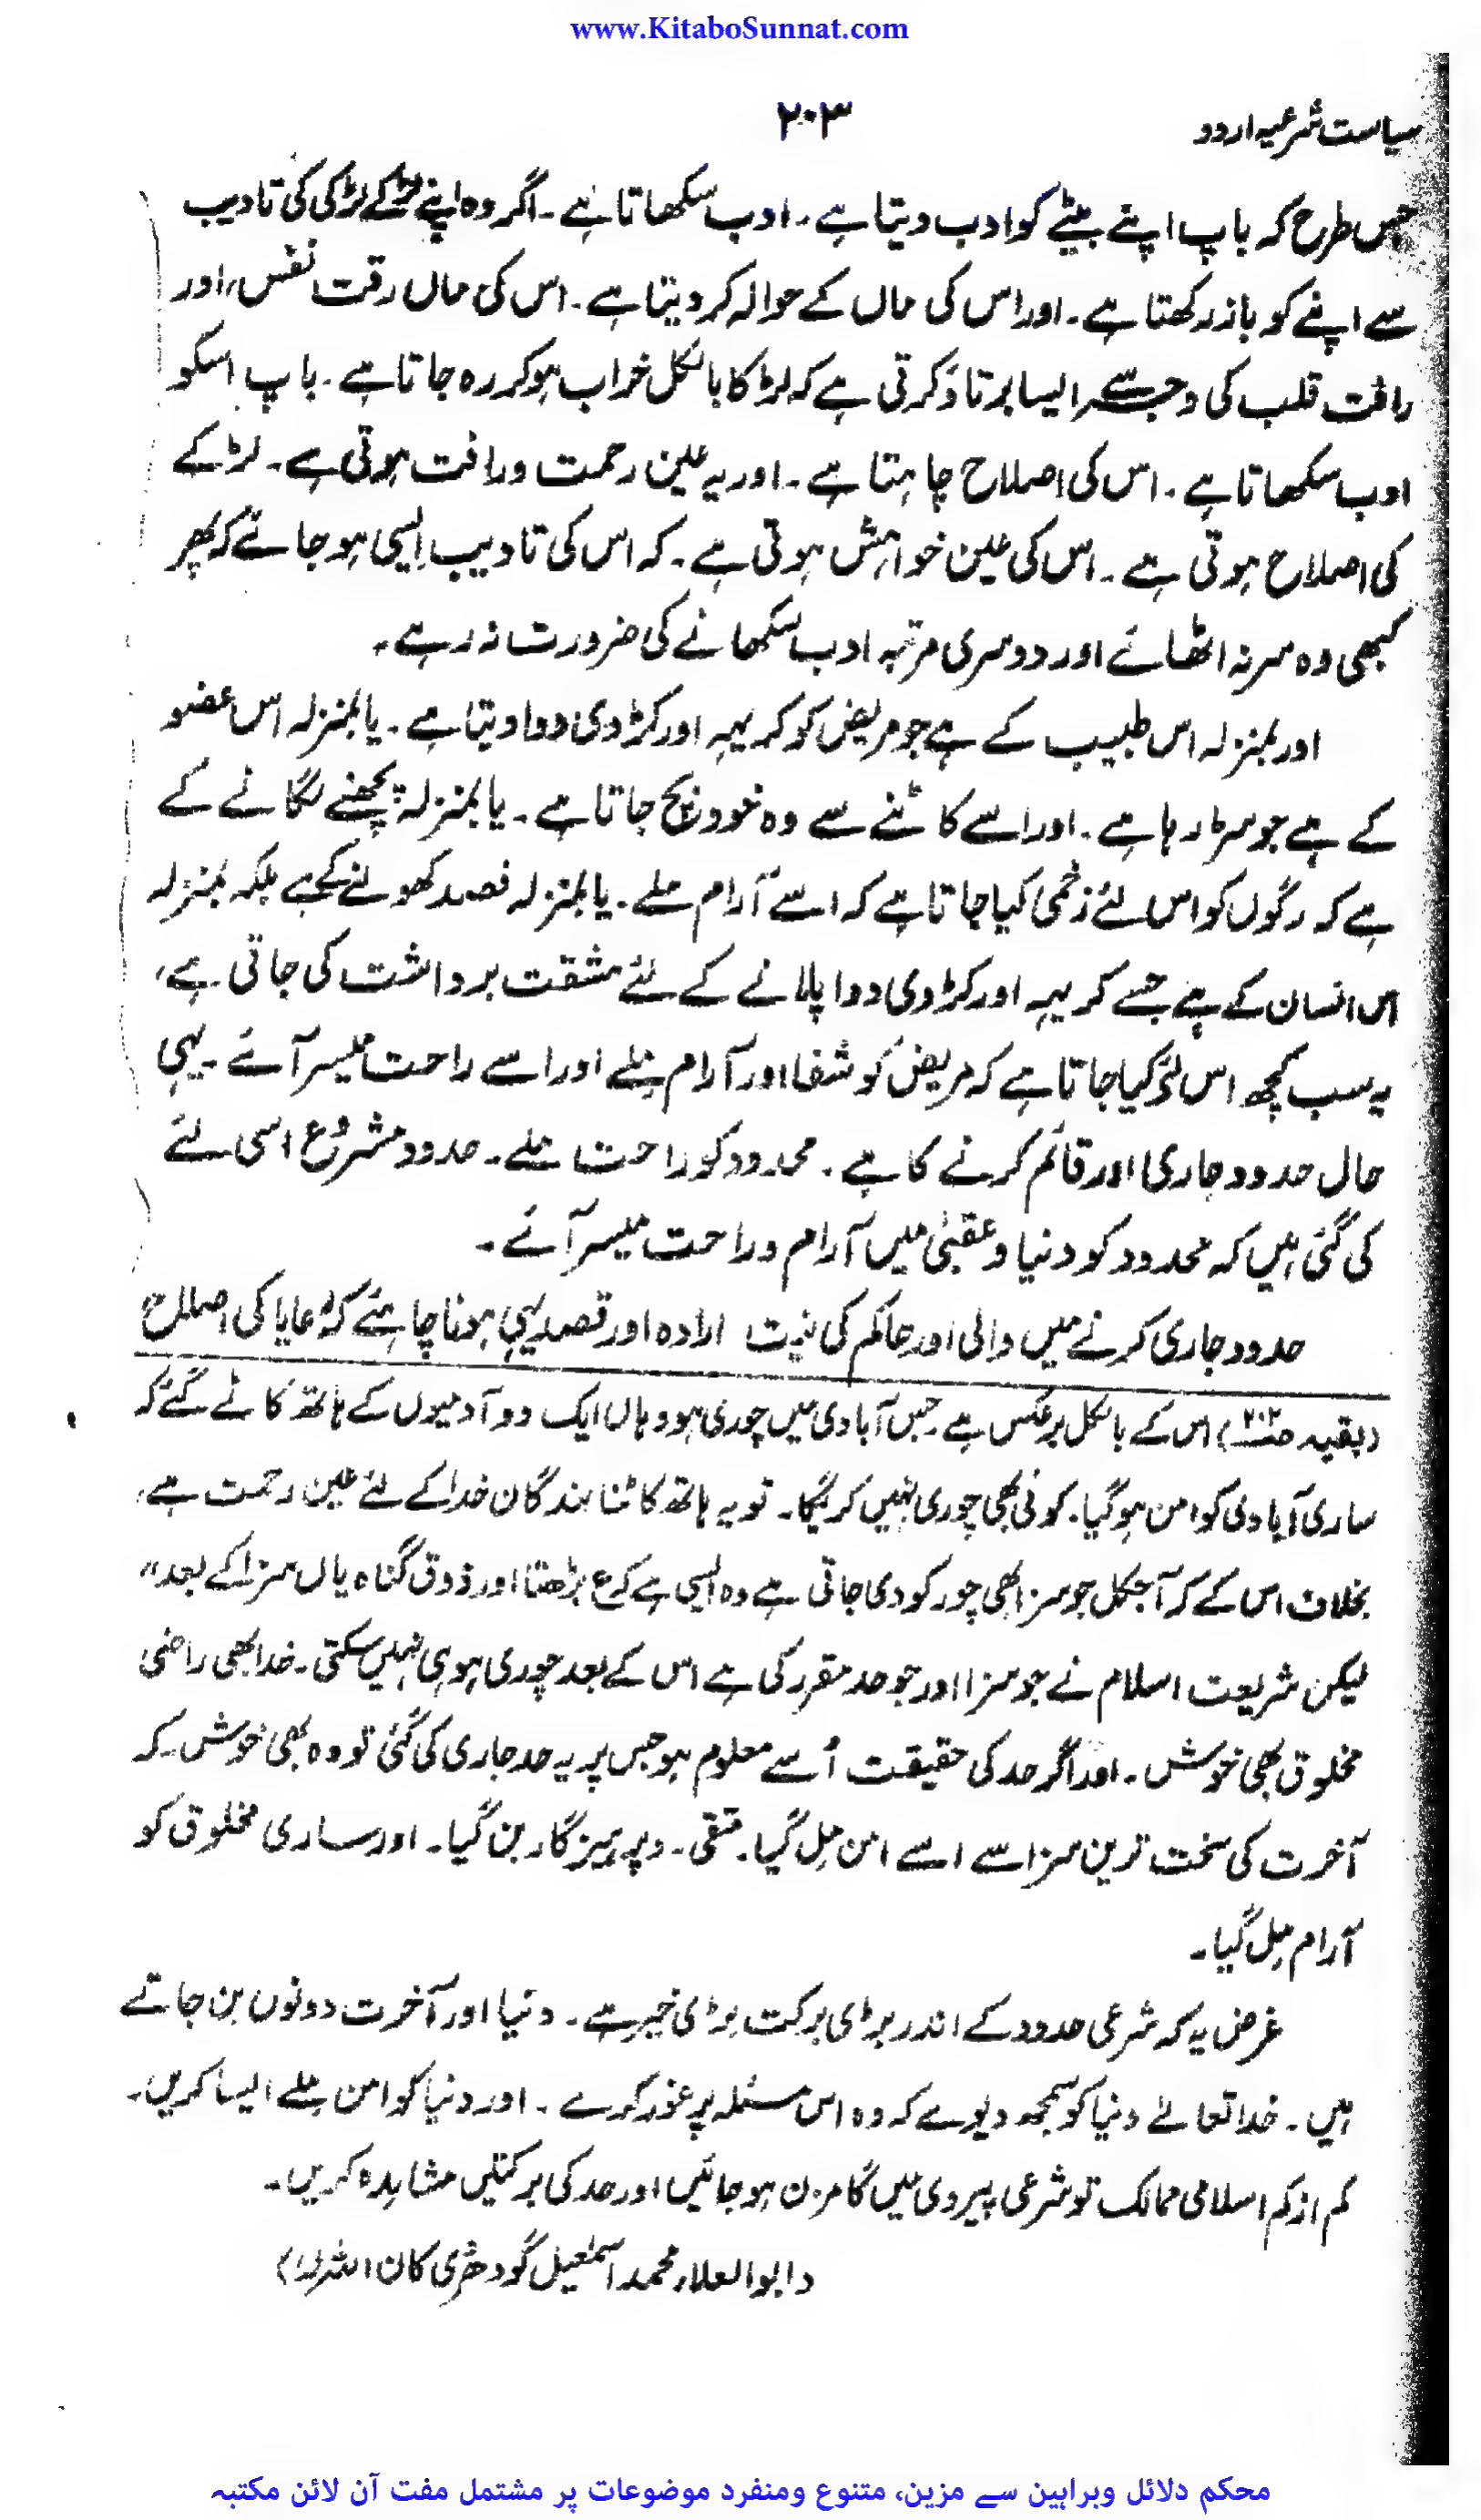 www.KitaboSunnat.com
سیاست شرعیہ اردو
۲۰۳
جس طرح کہ باپ اپنے بیٹے کو ادب دیتا ہے۔ ادب سکھاتا ہے۔ اگر وہ اپنے لڑکے لڑکی کی تادیب
سے اپنے کو باز رکھتا ہے۔ اور اس کی ماں کے حوالہ کر دیتا ہے۔ اس کی ماں رقت نفس، اور
رافت قلب کی وجہ سے ایسا برتاؤ کرتی ہے کہ لڑکا بالکل خراب ہو کر رہ جاتا ہے۔ باپ اسکو
ادب سکھاتا ہے۔ اس کی اصلاح چاہتا ہے۔ اور یہ عین رحمت ورافت ہوتی ہے۔ لڑکے
کی اصلاح ہوتی ہے۔ اس کی عین خواہش ہوتی ہے۔ کہ اس کی تادیب ایسی ہو جائے کہ پھر
کبھی وہ سر نہ اٹھائے اور دوسری مرتبہ ادب سکھانے کی ضرورت نہ رہے۔
اور بمنزلہ اس طبیب کے ہے جو مریض کو کریہہ اور کڑوی دوا دیتا ہے۔ یا بمنزلہ اس عضو
کے ہے جو سڑ رہا ہے۔ اور اسے کاٹنے سے وہ خود بچ جاتا ہے۔ یا بمنزلہ پچھنے لگانے کے
ہے کہ رگوں کو اس لئے زخمی کیا جاتا ہے کہ اسے آرام ملے۔ یا بمنزلہ فصد کھولنے کے ہے بلکہ بمنزلہ
اس انسان کے ہے جسے کریہہ اور کڑوی دوا پلانے کے لئے مشقت برداشت کی جاتی ہے،
یہ سب کچھ اس لئے کیا جاتا ہے کہ مریض کو شفا اور آرام ملے اور اسے راحت میسر آئے۔ یہی
حال حدود جاری اور قائم کرنے کا ہے۔ محدود کو راحت ملے۔ حدود مشروع اسی لئے
کی گئی ہیں کہ محدود کو دنیا و عقبیٰ میں آرام و راحت میسر آئے۔
حدود جاری کرنے میں والی اور حاکم کی نیت ارادہ اور قصد یہی ہونا چاہئے کہ رعایا کی اصلاح
(بقیہ ص۲۰۲) اس کے بالکل برعکس ہے جس آبادی میں چوری ہو وہاں ایک دو آدمیوں کے ہاتھ کاٹے گئے کہ
ساری آبادی کو امن ہو گیا۔ کوئی بھی چوری نہیں کریگا۔ تو یہ ہاتھ کاٹنا بندگان خدا کے لئے عین رحمت ہے،
بخلاف اس کے کہ آجکل جو سزا بھی چور کو دی جاتی ہے وہ ایسی ہے کہ ع بڑھتا اور ذوق گناہ یاں سزا کے بعد ،،
لیکن شریعت اسلام نے جو سزا اور جو حد مقرر کی ہے اس کے بعد چوری ہو ہی نہیں سکتی۔ خدا بھی راضی
مخلوق بھی خوش۔ اور اگر حد کی حقیقت اُسے معلوم ہو جس پر یہ حد جاری کی گئی تو وہ بھی خوش۔ کہ
آخرت کی سخت ترین سزا سے اسے امن مل گیا۔ متقی۔ و پرہیز گار بن گیا۔ اور ساری مخلوق کو
آرام مِل گیا۔
غرض یہ کہ شرعی حدود کے اندر بڑی برکت بڑی خیر ہے۔ دنیا اور آخرت دونوں بن جاتے
ہیں۔ خدا تعالےٰ دنیا کو سمجھ دیوے کہ وہ اس مسئلہ پر غور کرے۔ اور دنیا کو امن ملے ایسا کریں۔
کم از کم اسلامی ممالک تو شرعی پیروی میں گامزن ہو جائیں اور حد کی برکتیں مشاہدہ کریں۔
(ابوالعلاء محمد اسمٰعیل گودھڑی کان اللہ لہٗ)
محکم دلائل وبراہین سے مزین، متنوع ومنفرد موضوعات پر مشتمل مفت آن لائن مکتبہ